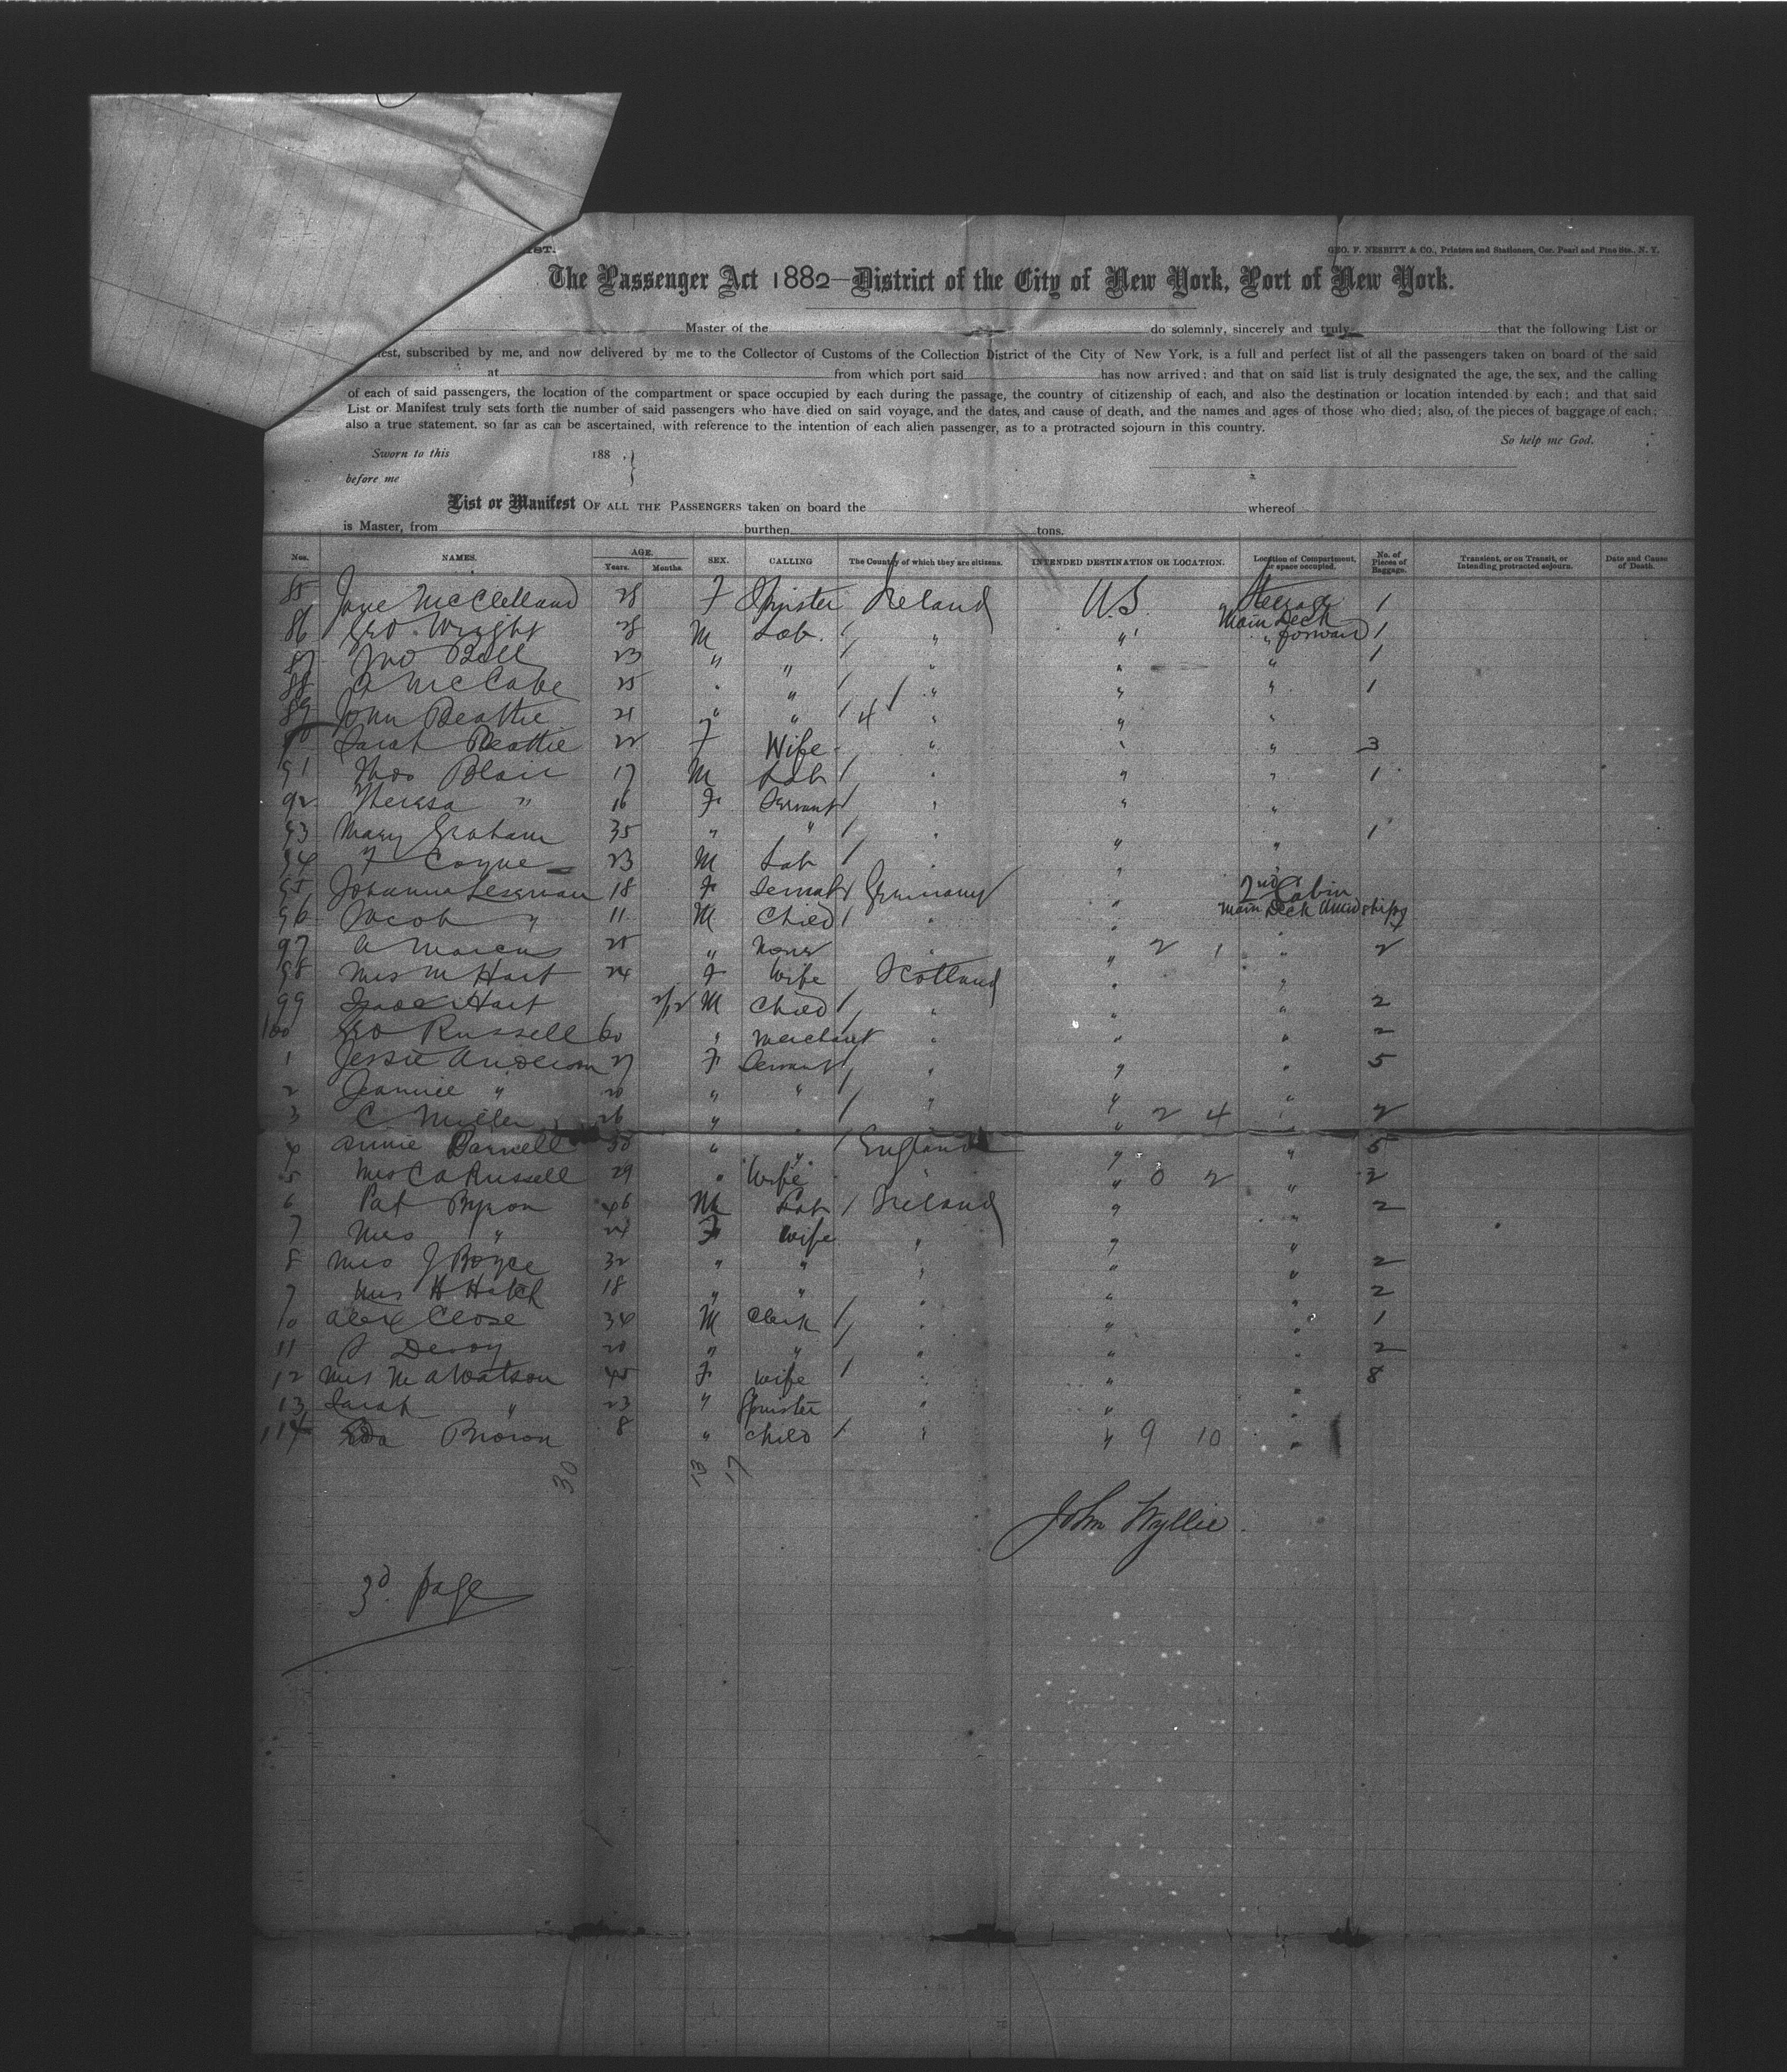 IST.
GEO. F. NESBITT & CO., Printers and Stationers, Cor. Pearl and Pine Sts., N. Y.
The Passenger Act 1882—District of the City of New York, Port of New York.
Master of the do solemnly, sincerely and truly that the following List or
est, subscribed by me, and now delivered by me to the Collector of Customs of the Collection District of the City of New York, is a full and perfect list of all the passengers taken on board of the said
at from which port said has now arrived: and that on said list is truly designated the age, the sex, and the calling
of each of said passengers, the location of the compartment or space occupied by each during the passage, the country of citizenship of each, and also the destination or location intended by each; and that said
List or Manifest truly sets forth the number of said passengers who have died on said voyage, and the dates, and cause of death, and the names and ages of those who died; also, of the pieces of baggage of each;
also a true statement, so far as can be ascertained, with reference to the intention of each alien passenger, as to a protracted sojourn in this country.
So help me God.
Sworn to this 188 .
before me
List or Manifest OF ALL THE PASSENGERS taken on board the whereof
is Master, from burthen tons.
Nos. NAMES. AGE. Years. Months. SEX. CALLING The Country of which they are citizens. INTENDED DESTINATION OR LOCATION. Location of Compartment, or space occupied. No. of Pieces of Baggage. Transient, or on Transit, or Intending protracted sojourn. Date and Cause of Death.
85 Jane McClelland 28 F Spinster Ireland U.S. Steerage 1
Main Deck
86 Geo. Wright 28 M Lab. / " " " forward 1
87 Jno Bell 23 " " / " " " 1
88 McCabe 25 " " / " " " 1
89 John Beattie 21 " " / 4 " " "
90 Sarah Beattie 22 F Wife " " " 3
91 Thos Blair 17 M Lab / " " " 1
92 Theresa " 16 F Servant / " " "
93 Mary Graham 35 " " / " " " 1
94 Coyne 23 M Lab / " " "
95 Johanna 18 F Servant / Germany " 2nd Cabin
96 Jacob " 11 M Child / " " Main Deck Amidships
97 A Marcus 25 " None " " 2 1 " 2
98 Mrs M Hart 24 F Wife Scotland " "
99 Isaac Hart 2/12 M Child / " " " 2
100 Geo Russell 60 " Merchant / " " " 2
1 Jessie Anderson 27 F Servant / " " " 5
2 Jeannie " 20 " " / " " "
3 C Miller 26 " " / " " 2 4 " 2
4 Annie 30 " " / England " " 5
5 Mrs C A Russell 29 " Wife " " 0 2 " 2
6 Pat Byron 46 M Lab / Ireland " " 2
7 Mrs " 24 F Wife " " "
8 Mrs J Boyce 32 " " " " " 2
9 Mrs H Hatch 18 " " " " " 2
10 Alex Close 34 M Clerk / " " " 1
11 Devoy 20 " " / " " " 2
12 Mrs M A Watson 45 F Wife / " " " 8
13 Sarah " 23 " Spinster " " "
114 Eda Brown 8 " Child / " " 9 10 "
30 13 17
John Wyllie.
3d. page